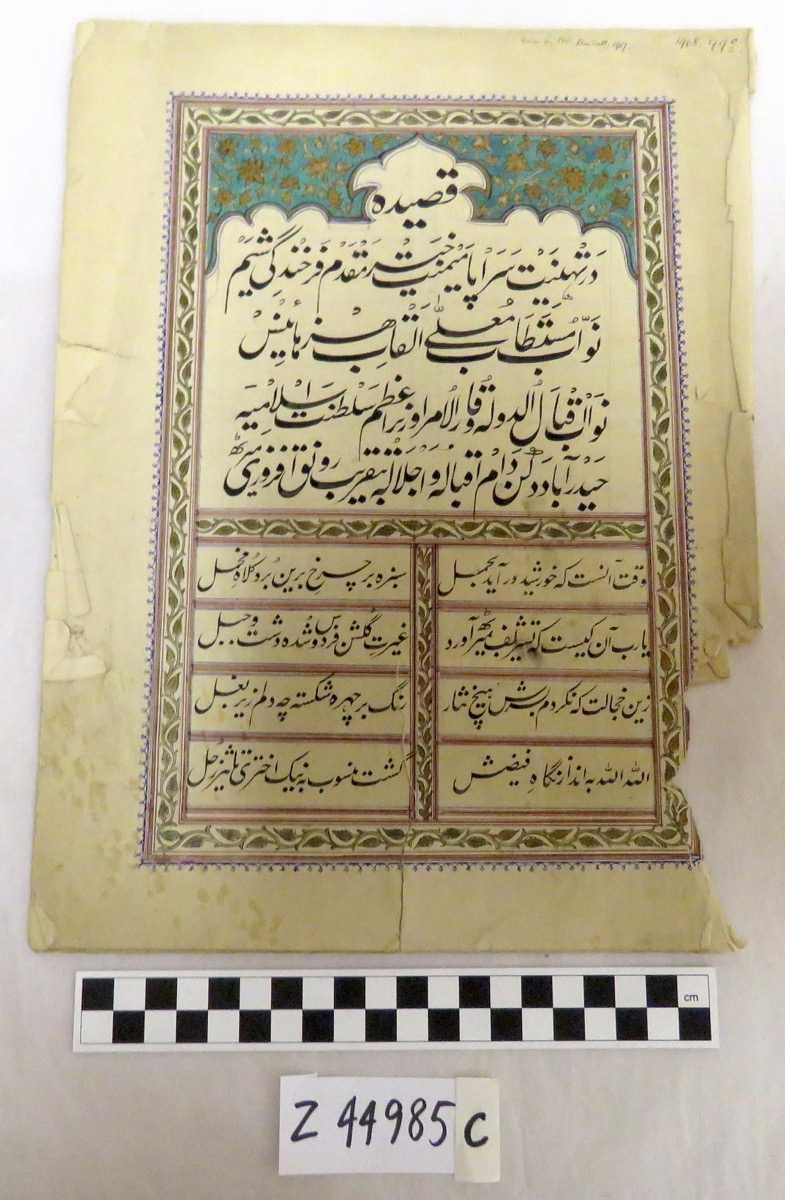 1908. 99
قصیده
در تهنیت سراپا میمنت خیر مقدم فرخندگی شیم
نوّاب مستطاب معلّی القاب هز هائینس
نواب اقبال الدوله وقار الامرا وزیر اعظم سلطنت اسلامیه
حیدرآباد دکن دام اقباله و اجلاله بتقریب رونق افروزی میرٹھ
وقت آنست که خورشید در آید بحمل سبزه بر چرخ برین برد کلاه مخمل
یارب آن کیست که تشریف بمیرٹھ آورد غیرت گلشن فردوس شده دشت و جبل
زین خجالت که نکردم بسرش هیچ نثار رنگ بر چهره شکسته چه دلم زیر بغل
الله الله به انداز نگاه فیضش گشت منسوب به نیک اختری تاثیر زحل
cm
Z 44985 C